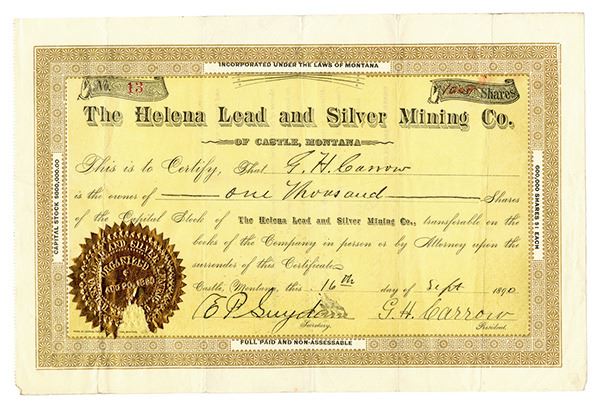 INCORPORATED UNDER THE LAWS OF MONTANA
No. 13
1000 Shares
The Helena Lead and Silver Mining Co.
OF CASTLE, MONTANA
CAPITAL STOCK $600,000.00
600,000 SHARES $1 EACH
This is to Certify, That G. H. Carrow
is the owner of one thousand Shares
of the Capital Stock of The Helena Lead and Silver Mining Co., transferable on the
books of the Company in person or by Attorney upon the
surrender of this Certificate.
Castle, Montana, this 16th day of Sept 1890
E P Suydam G. H. Carrow
Secretary. President.
LEAD AND SILVER MINING
ORGANIZED
FULL PAID AND NON-ASSESSABLE